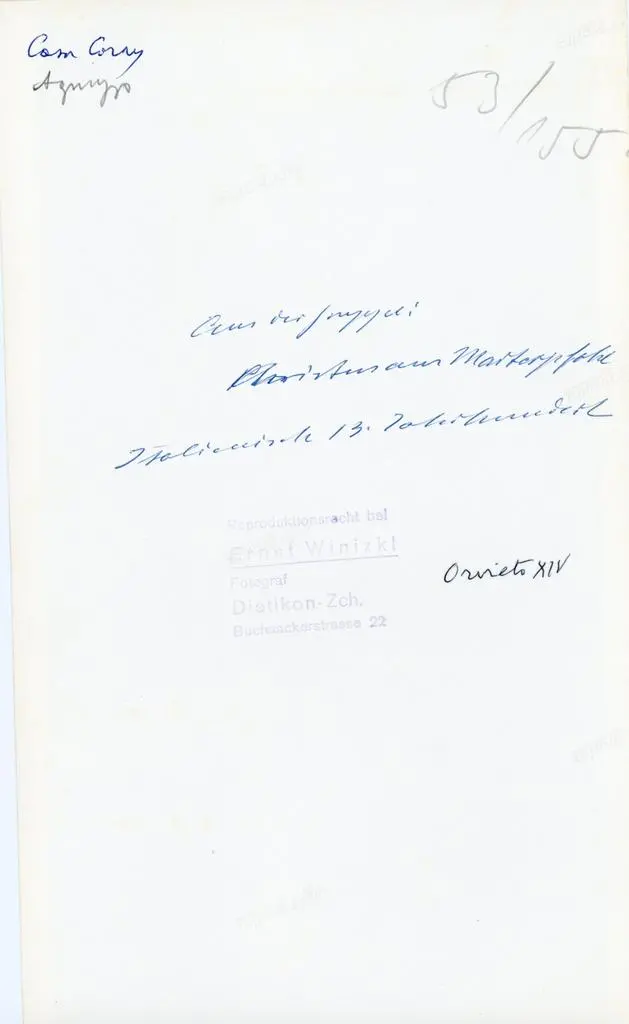 Casa Coray
53/155
Aus der Gruppe:
Christus am Marterpfahl
Italienisch 13. Jahrhundert
Reproduktionsrecht bei
Ernst Winizki
Fotograf
Dietikon-Zch.
22
Orvieto XIV